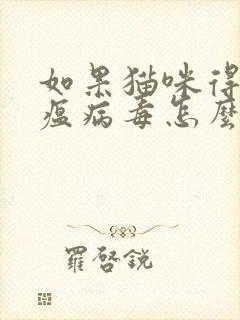 如果猫咪得
瘟病毒怎麼
羅啓銳